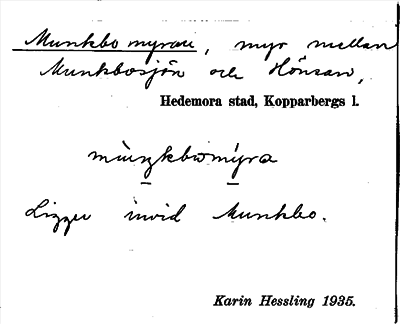 Munkbo myran, myr mellan
Munkbosjön och Hönsan,
Hedemora stad, Kopparbergs l.
Ligger invid Munkbo.
Karin Hessling 1935.